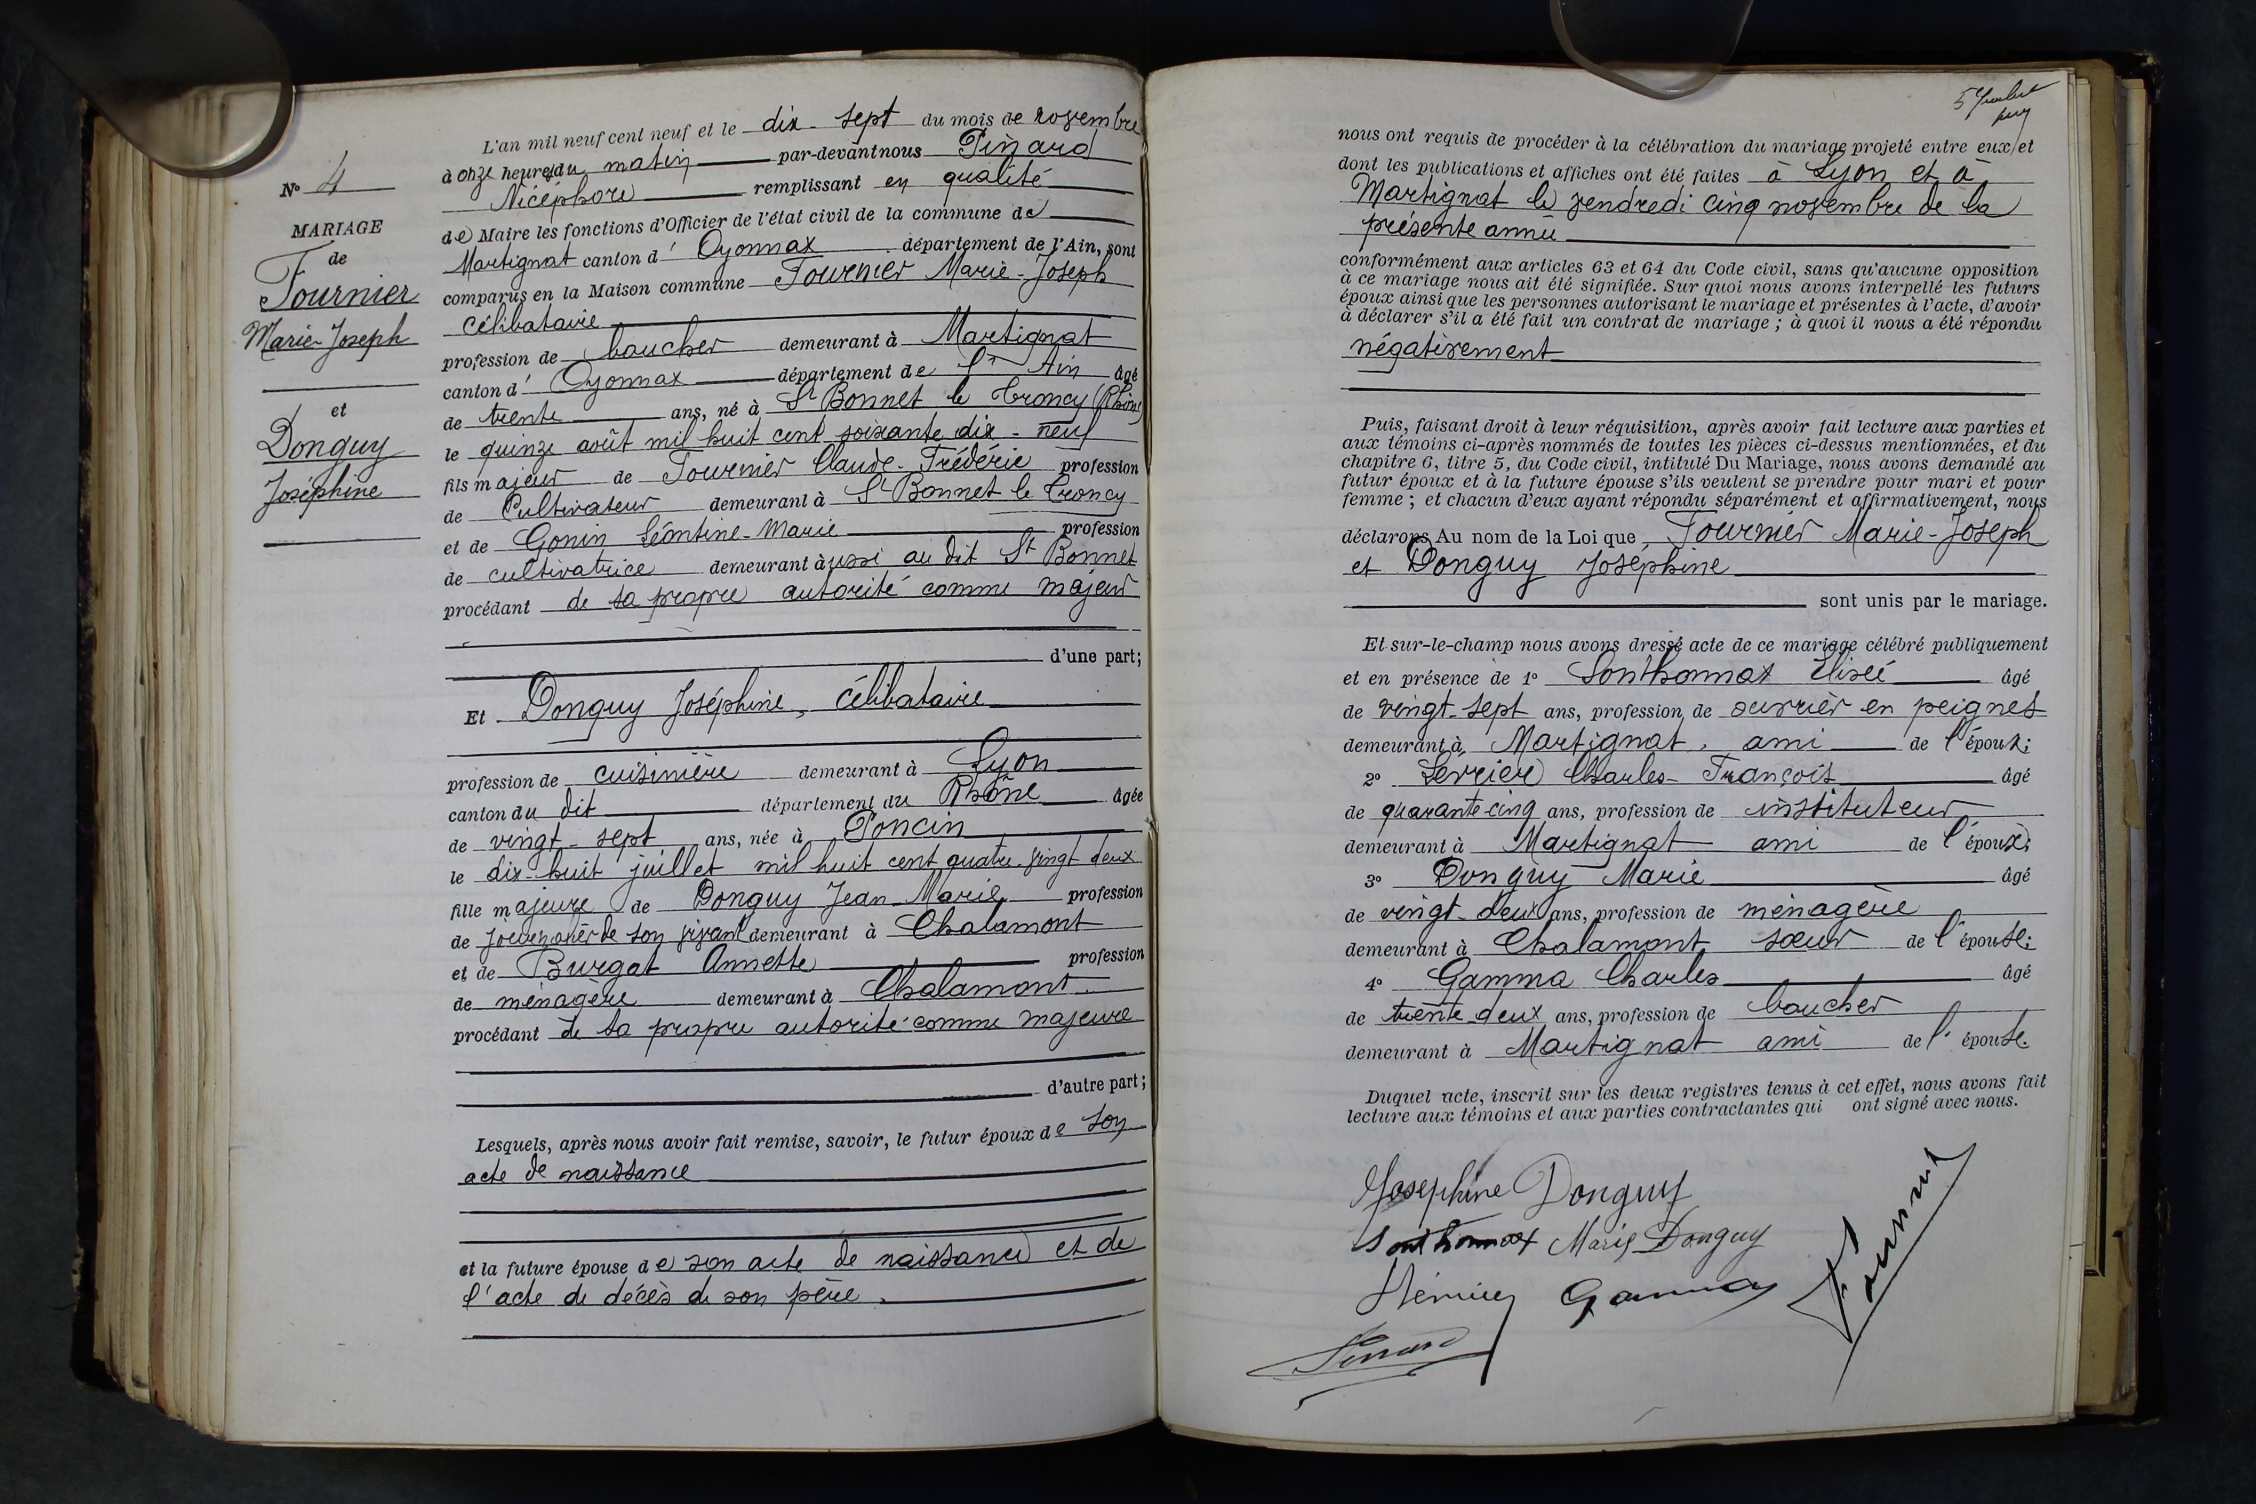 L'an mil neuf cent neuf et le dix-sept du mois de novembre
N° 4
à onze heures du matin par-devant nous Pinard
Nicéphore remplissant en qualité
de Maire les fonctions d'Officier de l'état civil de la commune de
MARIAGE
de
Fournier
Marie-Joseph
et
Donguy
Joséphine
Martignat canton d' Oyonnax département de l'Ain, sont
comparus en la Maison commune Fournier Marie-Joseph
célibataire
profession de boucher demeurant à Martignat
canton d' Oyonnax département de l'Ain âgé
de trente ans, né à St Bonnet le Troncy (Rhône)
le quinze août mil huit cent soixante dix-neuf
fils majeur de Fournier Claude-Frédéric profession
de Cultivateur demeurant à St Bonnet le Troncy
et de Gonin Léontine-Marie profession
de cultivatrice demeurant aussi au dit St Bonnet
procédant de sa propre autorité comme majeur
d'une part;
Et Donguy Joséphine, célibataire
profession de cuisinière demeurant à Lyon
canton du dit département du Rhône âgée
de vingt-sept ans, née à Poncin
le dix-huit juillet mil huit cent quatre-vingt deux
fille majeure de Donguy Jean-Marie profession
de journalier de son vivant demeurant à Chalamont
et de Burgat Annette profession
de ménagère demeurant à Chalamont
procédant de sa propre autorité comme majeure
d'autre part;
Lesquels, après nous avoir fait remise, savoir, le futur époux de son
acte de naissance
et la future épouse de son acte de naissance et de
l'acte de décès de son père.
nous ont requis de procéder à la célébration du mariage projeté entre eux et
dont les publications et affiches ont été faites à Lyon et à
Martignat le vendredi cinq novembre de la
présente année
conformément aux articles 63 et 64 du Code civil, sans qu'aucune opposition
à ce mariage nous ait été signifiée. Sur quoi nous avons interpellé les futurs
époux ainsi que les personnes autorisant le mariage et présentes à l'acte, d'avoir
à déclarer s'il a été fait un contrat de mariage; à quoi il nous a été répondu
négativement
Puis, faisant droit à leur réquisition, après avoir fait lecture aux parties et
aux témoins ci-après nommés de toutes les pièces ci-dessus mentionnées, et du
chapitre 6, titre 5, du Code civil, intitulé Du Mariage, nous avons demandé au
futur époux et à la future épouse s'ils veulent se prendre pour mari et pour
femme; et chacun d'eux ayant répondu séparément et affirmativement, nous
déclarons Au nom de la Loi que Fournier Marie-Joseph
et Donguy Joséphine
sont unis par le mariage.
Et sur-le-champ nous avons dressé acte de ce mariage célébré publiquement
et en présence de 1° Sonthonnax Elisée âgé
de vingt-sept ans, profession de ouvrier en peignes
demeurant à Martignat, ami de l'époux;
2° Charles-François âgé
de quarante-cinq ans, profession de instituteur
demeurant à Martignat ami de l'époux;
3° Donguy Marie âgé
de vingt-deux ans, profession de ménagère
demeurant à Chalamont sœur de l'épouse;
4° Gamma Charles âgé
de trente-deux ans, profession de boucher
demeurant à Martignat ami de l'épouse.
Duquel acte, inscrit sur les deux registres tenus à cet effet, nous avons fait
lecture aux témoins et aux parties contractantes qui ont signé avec nous.
Josephine Donguy
Sonthonnax Marie Donguy
Gamma
Fournier
Pinard